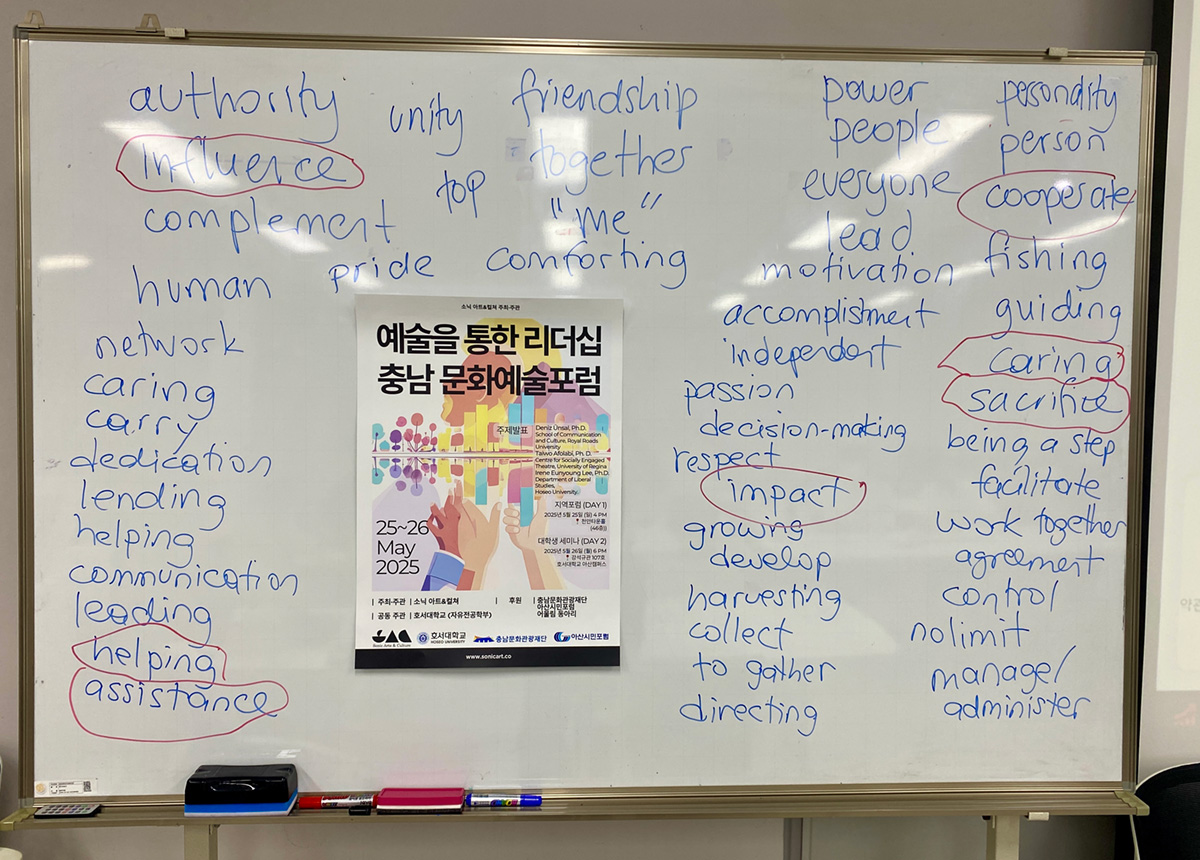 authority
influence
complement
human
network
caring
carry
dedication
lending
helping
communication
leading
helping
assistance
unity
top
pride
friendship
together
"me"
comforting
소닉 아트&컬쳐 주최·주관
예술을 통한 리더십
충남 문화예술포럼
주제발표
Deniz Unsal, Ph.D.
School of Communication
and Culture, Royal Roads
University
Taiwo Afolabi, Ph. D.
Centre for Socially Engaged
Theatre, University of Regina
Irene Eunyoung Lee, Ph.D.
Department of Liberal
Studies,
Hoseo University.
지역포럼 (DAY 1)
2025년 5월 25일 (일) 4 PM
천안타운홀
(46층)
대학생 세미나 (DAY 2)
2025년 5월 26일 (월) 6 PM
강석규관 107호
호서대학교 아산캠퍼스
25~26
May
2025
주최·주관 | 소닉 아트&컬쳐
공동 주관 | 호서대학교 (자유전공학부)
후원 | 충남문화관광재단
아산시민포럼
어울림 동아리
SAC
Sonic Arts & Culture
호서대학교
HOSEO UNIVERSITY
충남문화관광재단
아산시민포럼
www.sonicart.co
power
people
everyone
lead
motivation
accomplistment
independent
passion
decision-making
respect
impact
growing
develop
harvesting
collect
to gather
directing
personality
person
cooperate
fishing
guiding
caring
sacrifice
being a step
facilitate
work together
agreement
control
no limit
manage/
administer